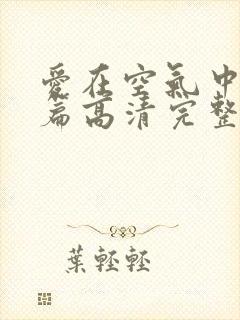 愛在空氣中
篇高清完整
葉輕輕